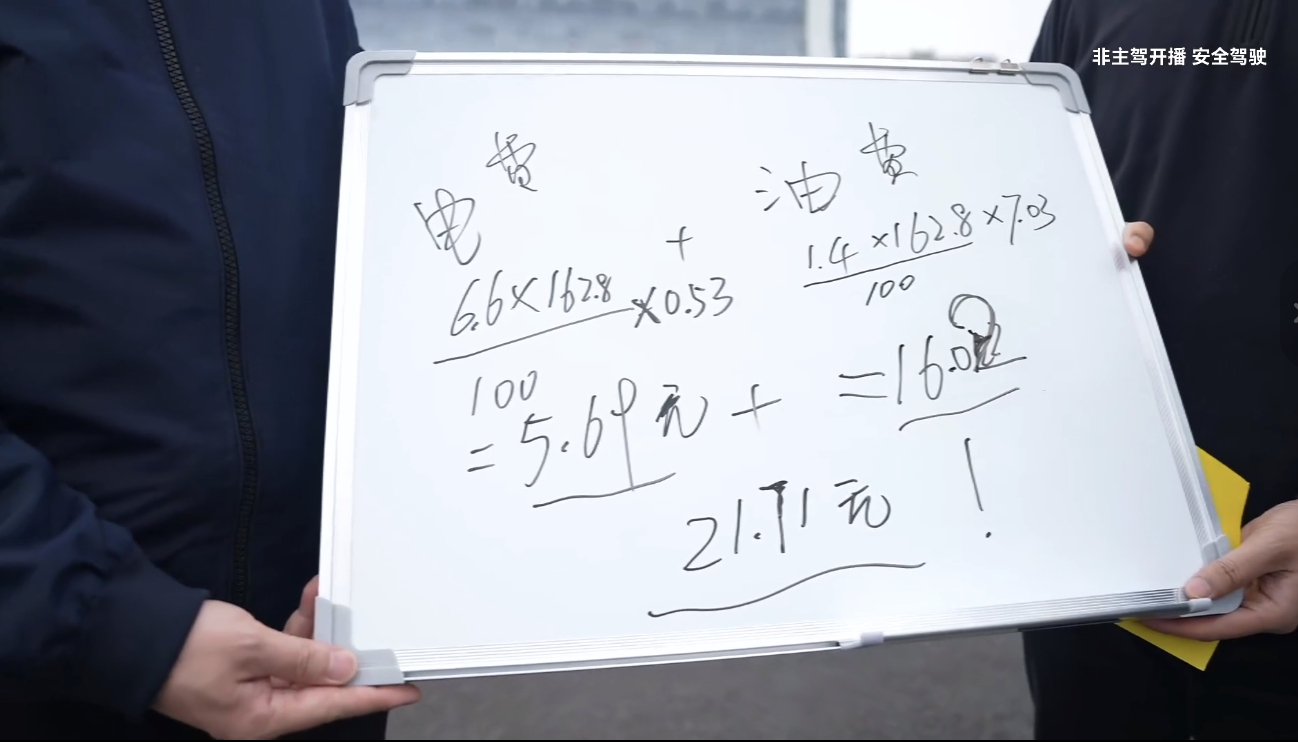 非主驾开播 安全驾驶
电费 + 油费
6.6×162.8/100 ×0.53
1.4×162.8/100 ×7.03
=5.69元 + =16.02
21.71元 !